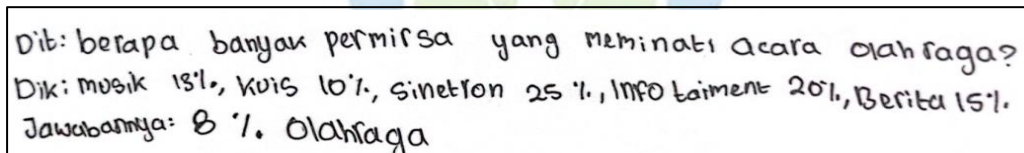 Dit: berapa banyak permirsa yang meminati acara olahraga?
Dik: musik 18%, Kuis 10%, Sinetron 25 %, Info taiment 20%, Berita 15%.
Jawabannya: 8 %. Olahraga